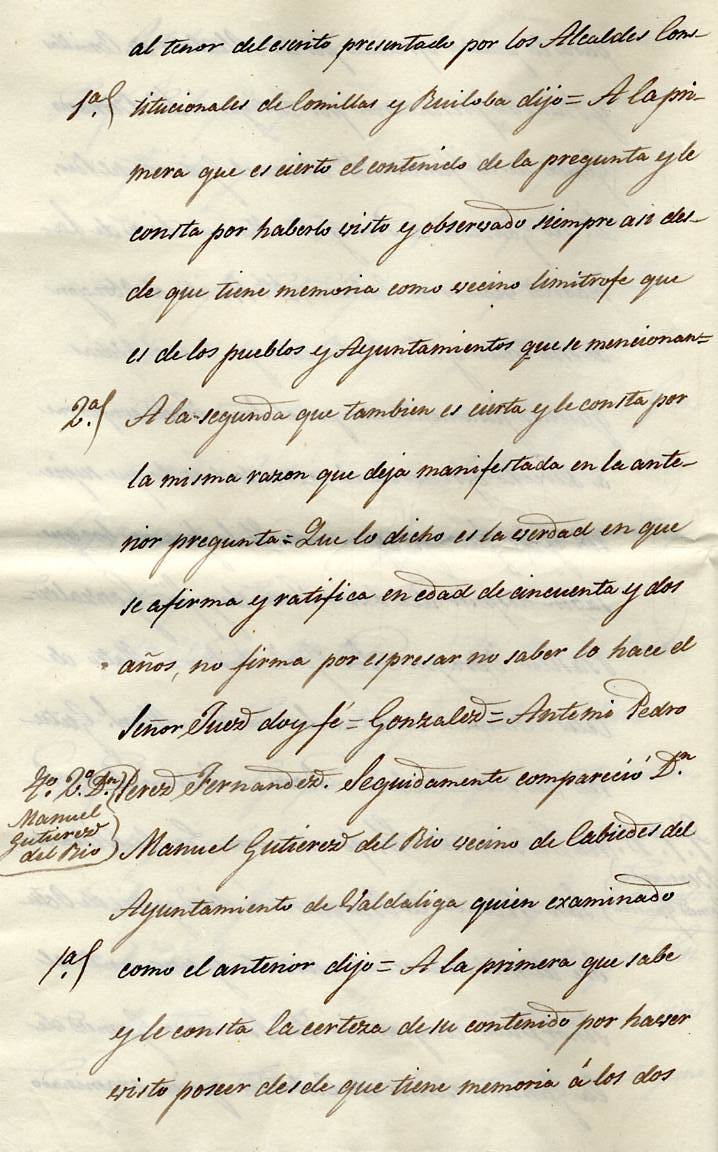 al tenor del escrito presentado por los Alcaldes Cons-
1ª titucionales de Comillas y Ruiloba dijo= A la pri-
mera que es cierto el contenido de la pregunta y le
consta por haberlo visto y observado siempre asi des-
de que tiene memoria como vecino limitrofe que
es de los pueblos y Ayuntamientos que se mencionan=
2ª A la segunda que tambien es cierta y le consta por
la misma razon que deja manifestada en la ante-
rior pregunta= Que lo dicho es la verdad en que
se afirma y ratifica en edad de cincuenta y dos
años, no firma por espresar no saber lo hace el
Señor Juez doy fé= Gonzalez= Antemi Pedro
Perez Fernandez. Seguidamente compareció Dn
Tº 2º Dn
Manuel
Gutierez
del Rio
Manuel Gutierez del Rio vecino de Labiedes del
Ayuntamiento de Valdaliga quien examinado
1ª como el anterior dijo= A la primera que sabe
y le consta la certeza de su contenido por haver
visto poseer desde que tiene memoria á los dos